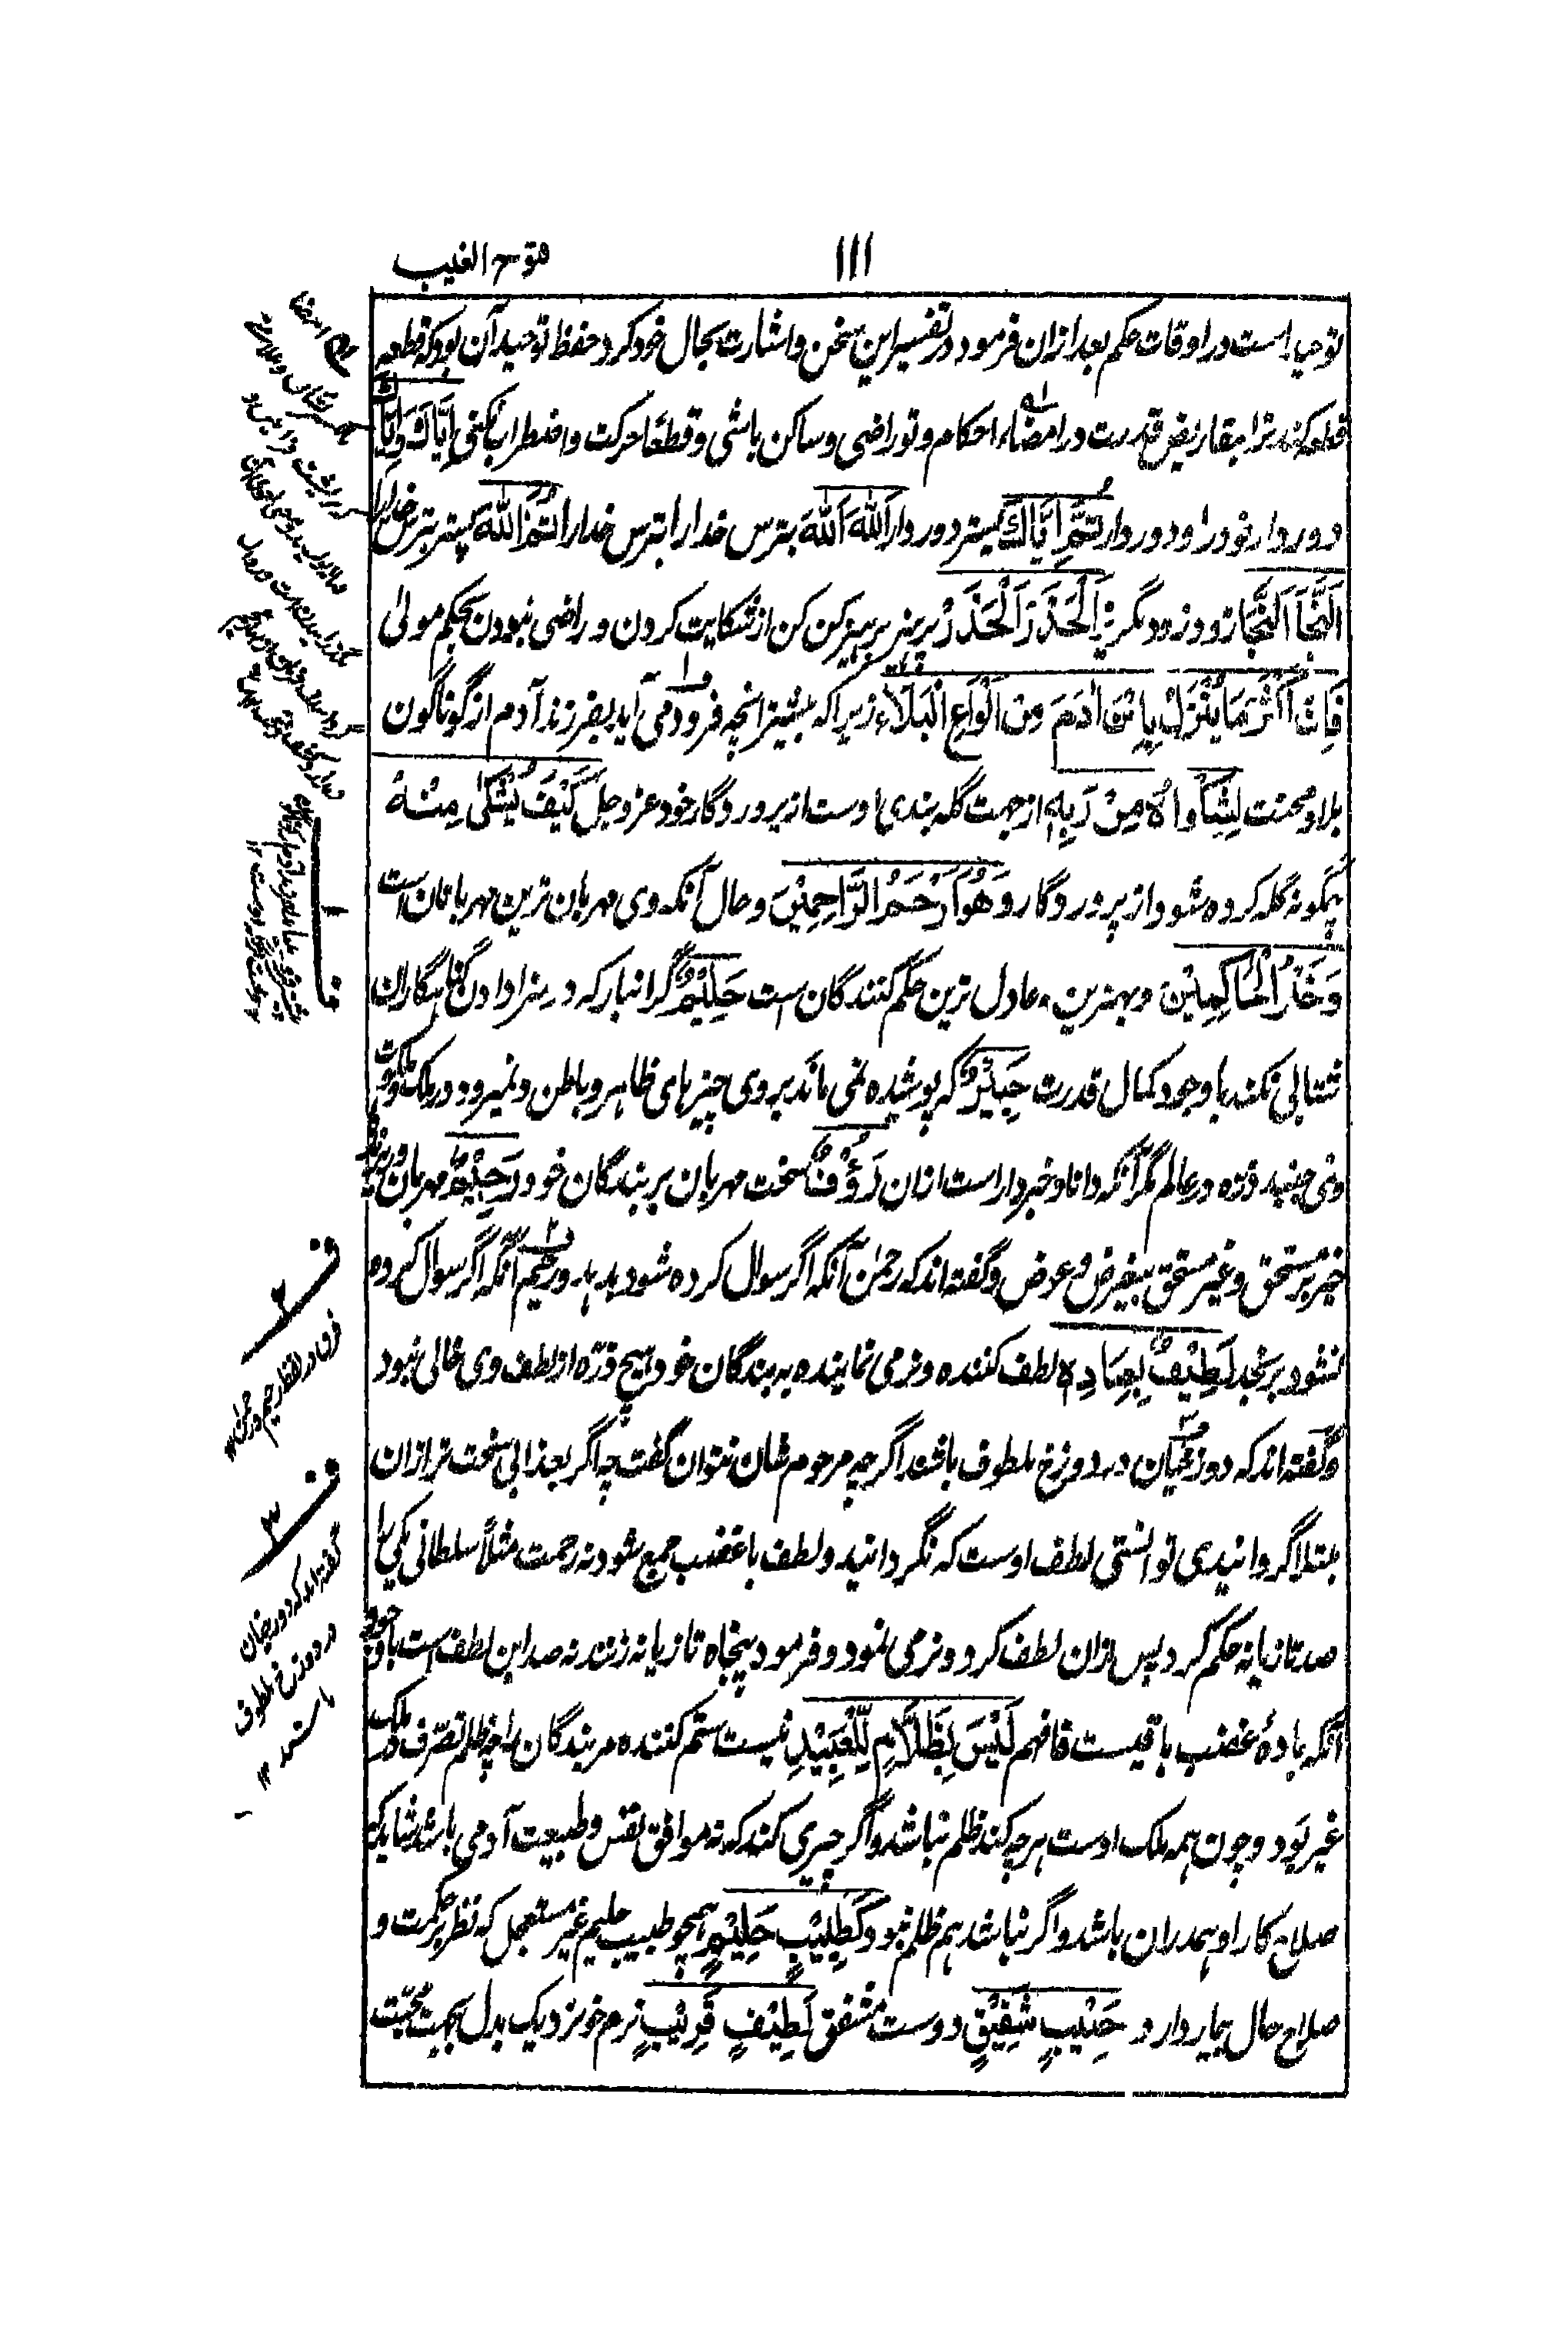 ۱۱۱
فتوح الغیب
توحید است در اوقات حکم بعد ازان فرمود در تفسیر این سخن و اشارت بحال خود کرد حفظ توحید آن بود که قطعه
قطعه کنند ترا بمقاریض قدرت در امضاء احکام و تو راضی و ساکن باشی و قطعًا حرکت و اضطراب نکنی اِیَّاکَ وَاِیَّاکَ
دور دار خود را و دور دار ثُمَّ اِیَّاکَ پستر دور دار اَللّٰهَ اَللّٰهَ بترس خدا را بترس خدا را ثُمَّ اللّٰهَ پستر بترس خدا را
اَلنَّجَا اَلنَّجَا زود زود بگریز اَلْحَذَرَ اَلْحَذَرْ پرهیز پرهیز کن کن از شکایت کردن و راضی نبودن بحکم مولیٰ
فَاِنَّ اَکْثَرَ مَا یُنْزَلُ بِابْنِ اٰدَمَ مِنْ اَنْوَاعِ الْبَلَاۤءِ زیرا که بیشتر انچه فرود می آید بفرزند آدم از گوناگون
بلا و محنت لِشَکْوَاهُ مِنْ رَبِّهٖ از جهت گله بندی اوست از پروردگار خود عز و جل کَیْفَ یُشْکٰی مِنْهُ
چگونه گله کرده شود از پروردگار وَهُوَ اَرْحَمُ الرَّاحِمِیْنَ و حال آنکه وی مهربان ترین مهربانان است
وَخَیْرُ الْحَاکِمِیْنَ و بهترین و عادل ترین حکم کنندگان است حَلِیْمٌ گرانبار که در سزا دادن گناهگاران
شتابی نکند با وجود کمال قدرت خَبِیْرٌ که پوشیده نمی ماند بر وی چیزهای ظاهر و باطن و نمیرود در ملک و ملکوت
و نمی جنبد ذره در عالم مگر آنکه دانا و خبردار است ازان رَؤُفٌ سخت مهربان بر بندگان خود رَحِیْمٌ مهربان
خیر بر مستحق و غیر مستحق بیغرض و عوض و گفته اند که رحمٰن آنکه اگر سوال کرده شود بدهد و رحیم آنکه اگر سوال کرده
نشود برنجد لَطِیْفٌ بِعِبَادِهٖ لطف کننده و نرمی نماینده به بندگان خود هیچ ذرّه از لطف وی خالی نبود
و گفته اند که دوزخیان در دوزخ ملطوف باشند اگر چه مرحوم شان نتوان گفت چه اگر بعذابی سخت تر ازان
مبتلا گردانیدی توانستی لطف اوست که نگردانید و لطف با غضب جمع شود نه رحمت مثلاً سلطانی یکی را
صد تازیانه حکم کرد پس ازان لطف کرد و نرمی نمود و فرمود پنجاه تازیانه زنند نه صد این لطف است با وجود
آنکه مادهٔ غضب باقیست فافهم لَیْسَ بِظَلَّامٍ لِّلْعَبِیْدِ نیست ستم کننده مر بندگان را چه ظلم تصرف در ملک
غیر بود و چون همه ملک اوست هر چه کند ظلم نباشد و اگر چیزی کند که نه موافق نفس و طبیعت آدمی باشد شاید که
صلاح کار او همدران باشد و اگر نباشد هم ظلم نبود کَطَبِیْبٍ حَلِیْمٍ همچو طبیب حلیم غیر مستعجل که نظر بر حکمت و
صلاح حال بیمار دارد حَبِیْبٍ شَفِیْقٍ دوست مشفق لَطِیْفٍ قَرِیْبٍ نرم خو نزدیک بدل بجهت محبّت
ف ۲
فرق در لفظ رحیم و رحمٰن ۱۲
ف ۳
گفته اند که دوزخیان
در دوزخ ملطوف
باشند ۱۲